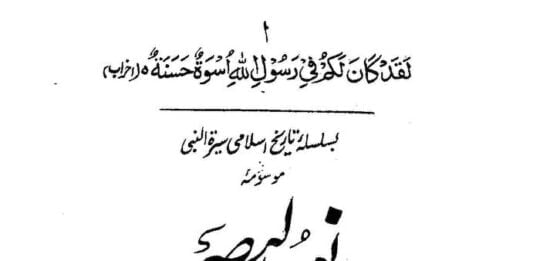 ا
لَقَدْ كَانَ لَكُمْ فِي رَسُولِ اللهِ اُسْوَةٌ حَسَنَةٌ ٥ (احزاب)
بسلسلۂ تاریخ اسلامی سیرۃ النبی
موسومہ